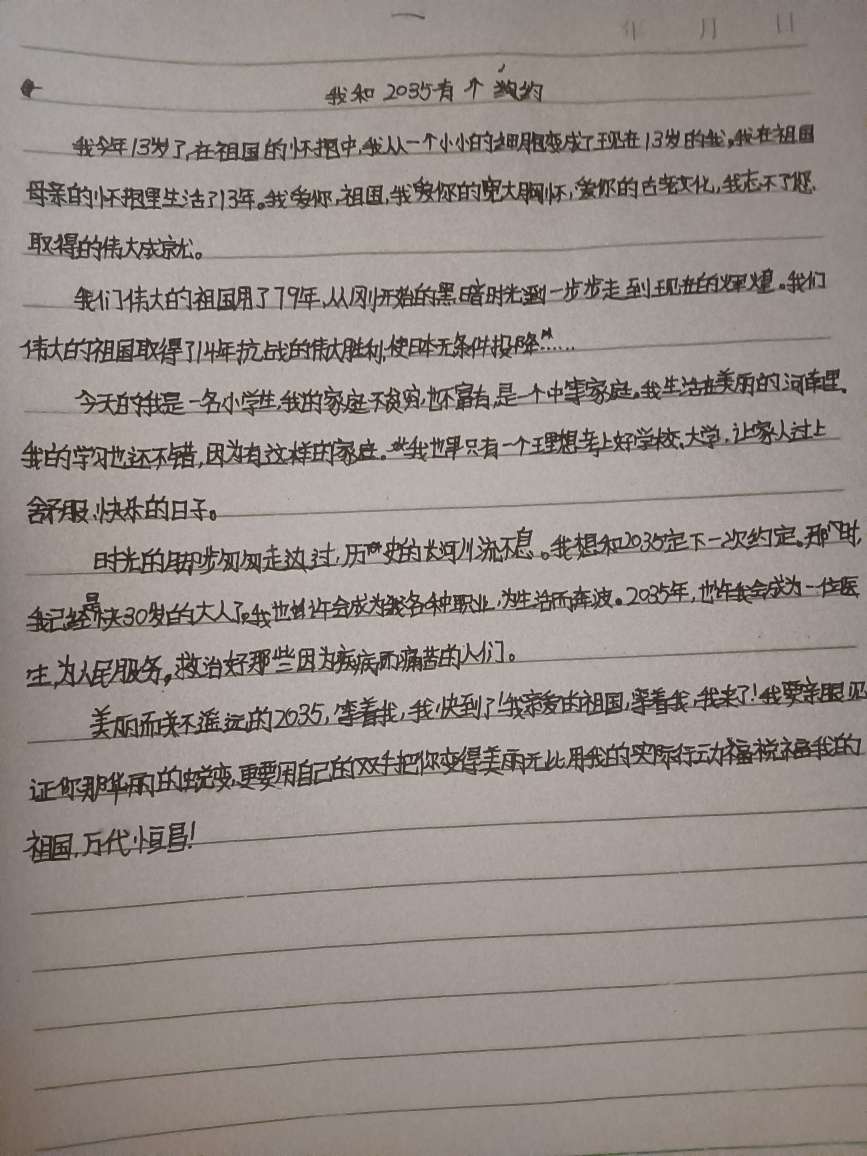 年 月 日
我和2035有个约
我今年13岁了,在祖国的怀抱中,我从一个小小的细胞变成了现在13岁的我,我在祖国
母亲的怀抱里生活了13年。我爱你,祖国,我爱你的宽大胸怀,爱你的古老文化,我忘不了您
取得的伟大成就。
我们伟大的祖国用了79年,从刚开始的黑暗时光到一步步走到现在的辉煌。我们
伟大的祖国取得了14年抗战的伟大胜利,使日本无条件投降……
今天的我是一名小学生,我的家庭不贫穷,也不富有,是一个中等家庭。我生活在美丽的河南里。
我的学习也还不错,因为有这样的家庭。我也早只有一个理想考上好学校、大学,让家人过上
舒服、快乐的日子。
时光的脚步匆匆走过,历史的长河川流不息。我想和2035定下一次约定。那时,
我已经是快30岁的大人了。我也许会成为各种职业,为生活而奔波。2035年,也许我会成为一位医
生,为人民服务,救治好那些因为疾病而痛苦的人们。
美丽而不遥远的2035,等着我,我快到了!我亲爱的祖国,等着我,我来了!我要亲眼见
证你那华丽的蜕变,更要用自己的双手把你变得美丽无比用我的实际行动祝福我的
祖国,万代恒昌!